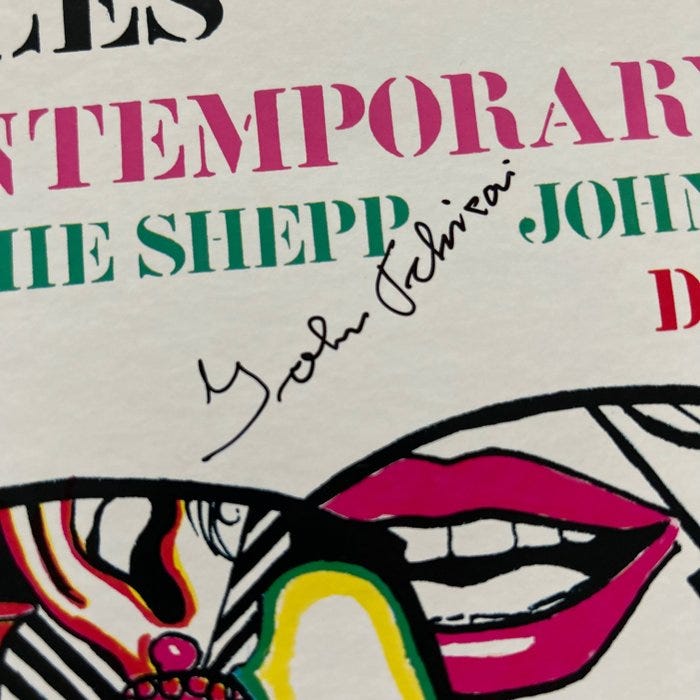 LES
NTEMPORARY
HIE SHEPP JOHN
D
John Tchicai